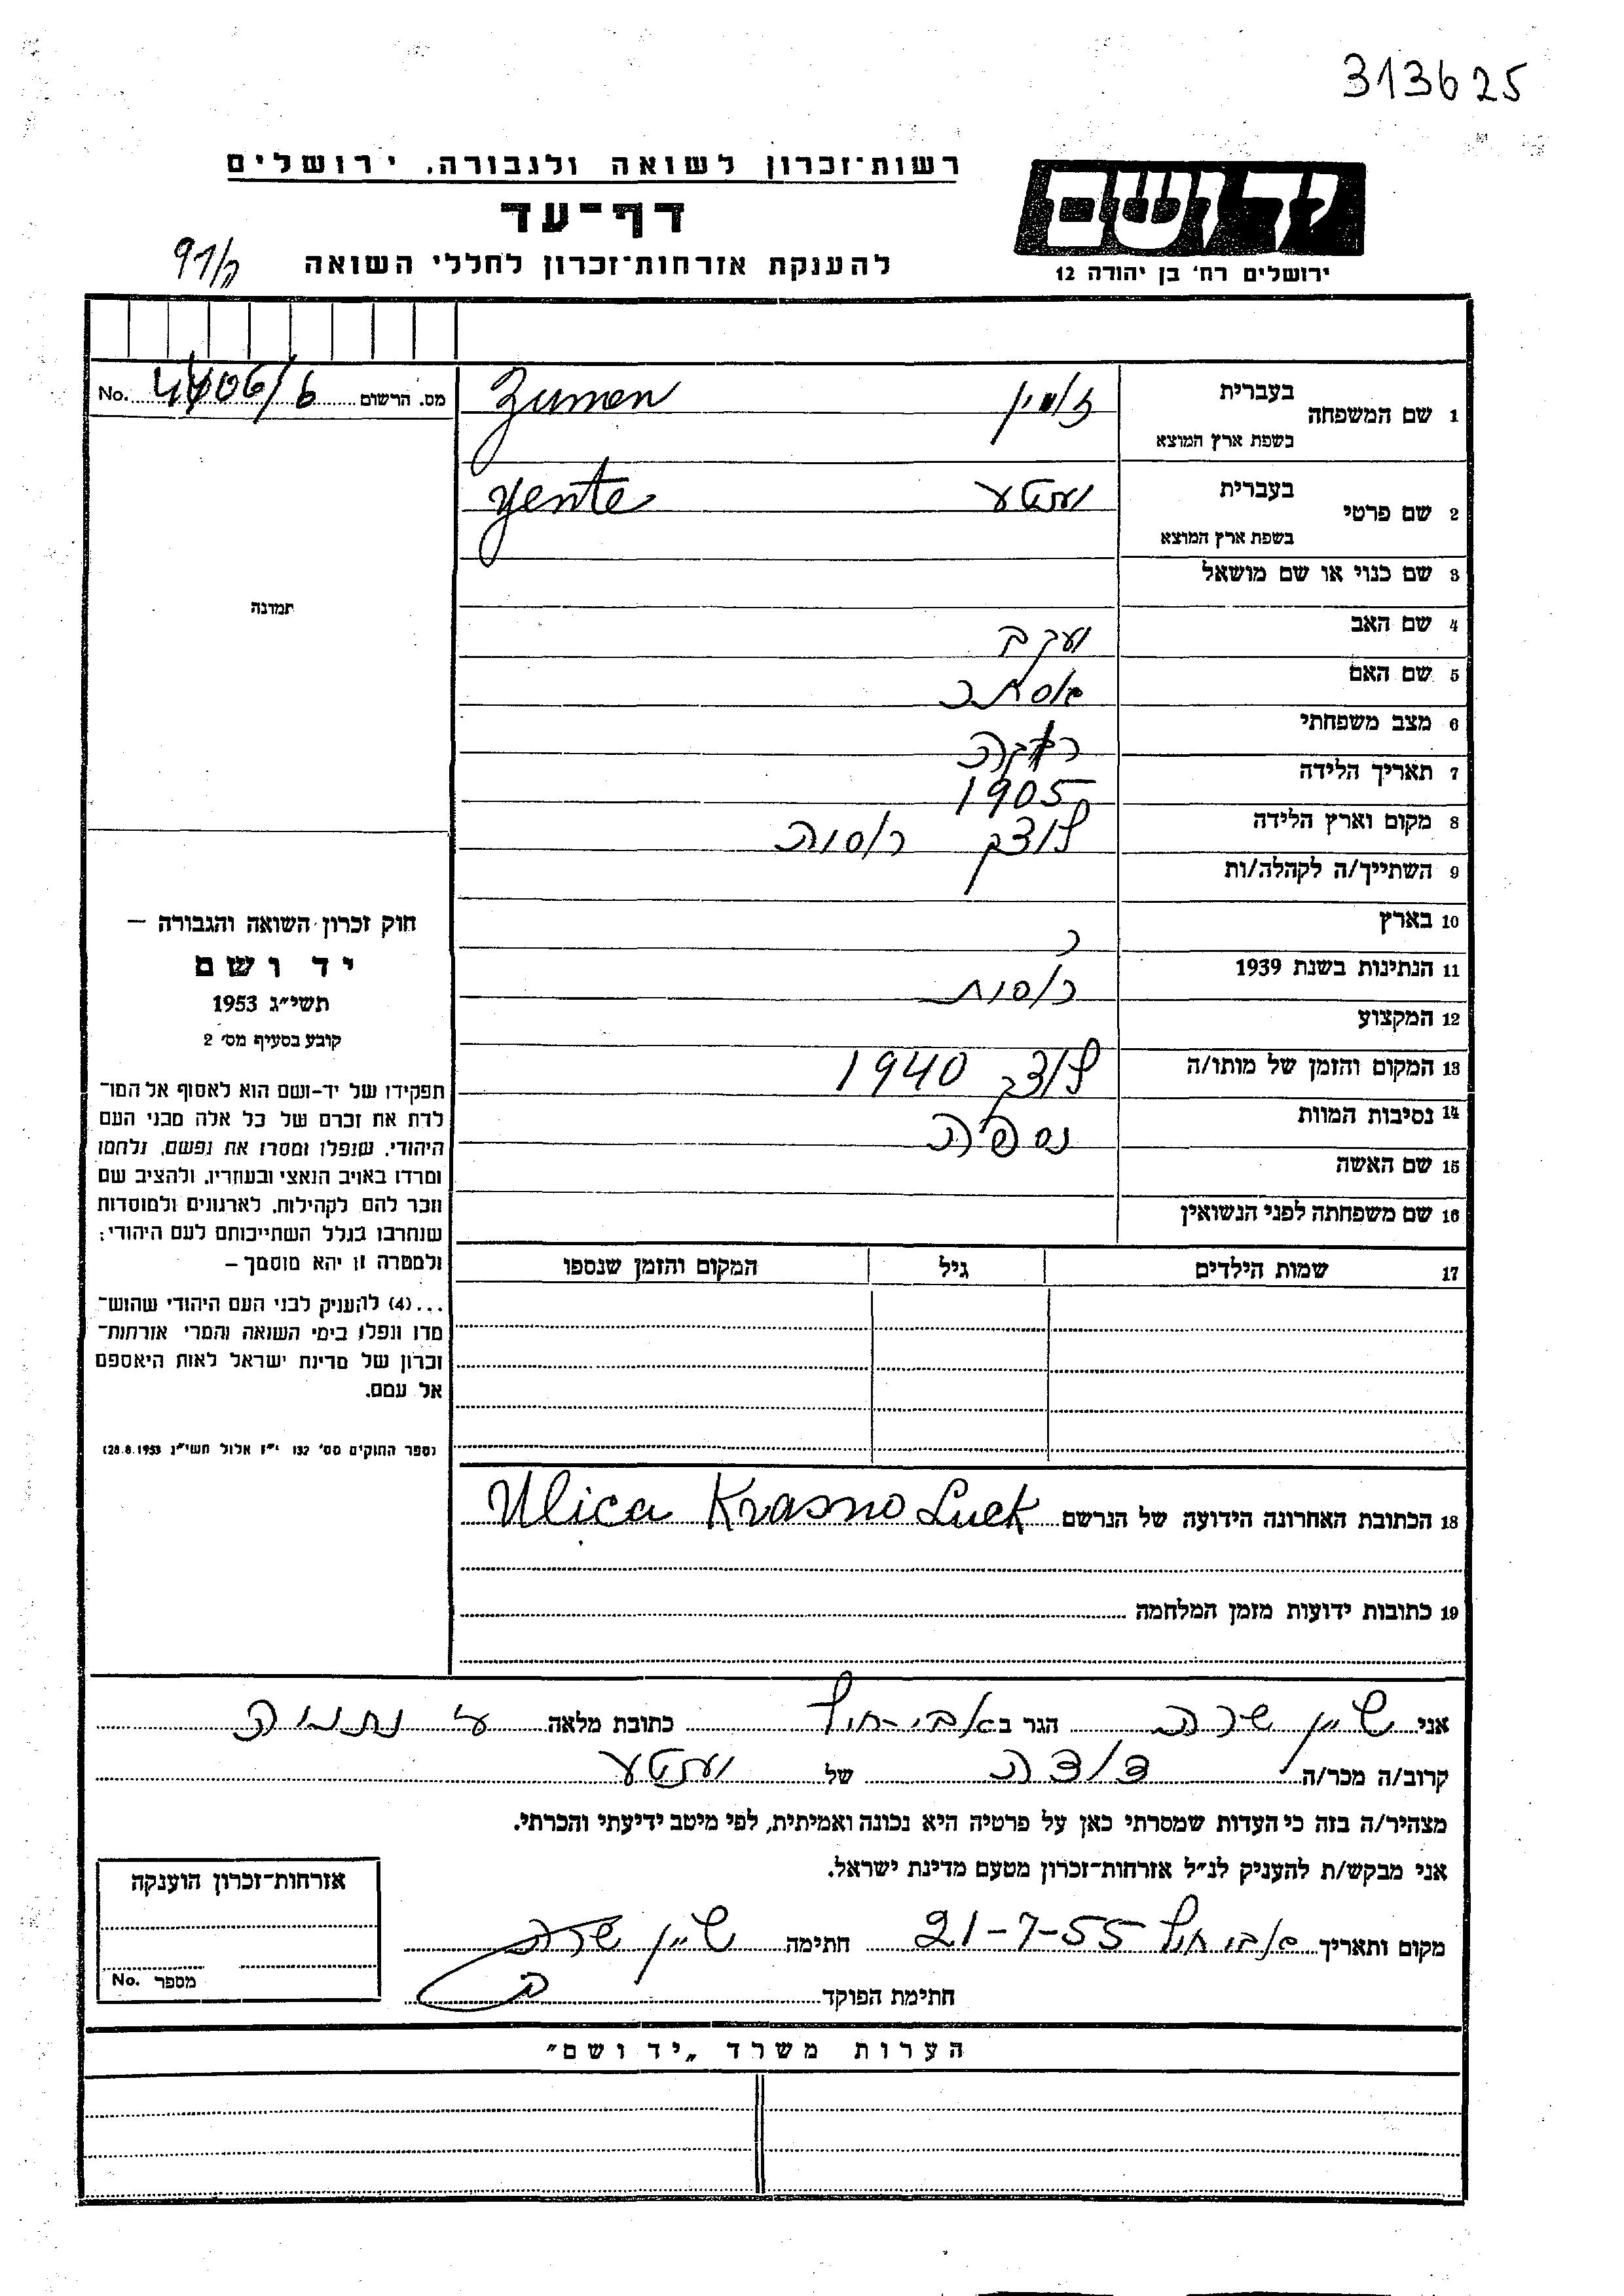 313625
רשות־זכרון לשואה ולגבורה, ירושלים
דף־עד
להענקת אזרחות־זכרון לחללי השואה
ידושם
ירושלים רח' בן יהודה 12
No. מס. הרשום
1 שם המשפחה בעברית
בשפת ארץ המוצא Zumen
2 שם פרטי בעברית יענטע
בשפת ארץ המוצא Yente
3 שם כנוי או שם מושאל
4 שם האב יעקב
5 שם האם
6 מצב משפחתי
7 תאריך הלידה 1905
8 מקום וארץ הלידה לוצק רוסיה
9 השתייך/ה לקהלה/ות
10 בארץ
11 הנתינות בשנת 1939 רוסית
12 המקצוע
13 המקום והזמן של מותו/ה לוצק 1940
14 נסיבות המוות נספתה
15 שם האשה
16 שם משפחתה לפני הנשואין
17 שמות הילדים גיל המקום והזמן שנספו
18 הכתובת האחרונה הידועה של הנרשם Ulica Krasno Luck
19 כתובות ידועות מזמן המלחמה
תמונה
חוק זכרון השואה והגבורה –
יד ושם
תשי״ג 1953
קובע בסעיף מס' 2
תפקידו של יד-ושם הוא לאסוף אל המו־
לדת את זכרם של כל אלה מבני העם
היהודי, שנפלו ומסרו את נפשם, נלחמו
ומרדו באויב הנאצי ובעוזריו, ולהציב שם
וזכר להם לקהילות, לארגונים ולמוסדות
שנחרבו בגלל השתייכותם לעם היהודי;
ולמטרה זו יהא מוסמך –
...(4) להעניק לבני העם היהודי שהוש־
מדו ונפלו בימי השואה והמרי אזרחות־
זכרון של מדינת ישראל לאות היאספם
אל עמם.
(ספר החוקים מס' 132 י״ז אלול תשי״ג 28.8.1953)
אני שיין שרה הגר ב אביחיל כתובת מלאה ע נתניה
קרוב/ה מכר/ה דודה של יענטע
מצהיר/ה בזה כי העדות שמסרתי כאן על פרטיה היא נכונה ואמיתית, לפי מיטב ידיעתי והכרתי.
אני מבקש/ת להעניק לנ״ל אזרחות־זכרון מטעם מדינת ישראל.
מקום ותאריך אביחיל 21-7-55 חתימה שיין שרה
חתימת הפוקד
אזרחות־זכרון הוענקה
מספר No.
הערות משרד „יד ושם״